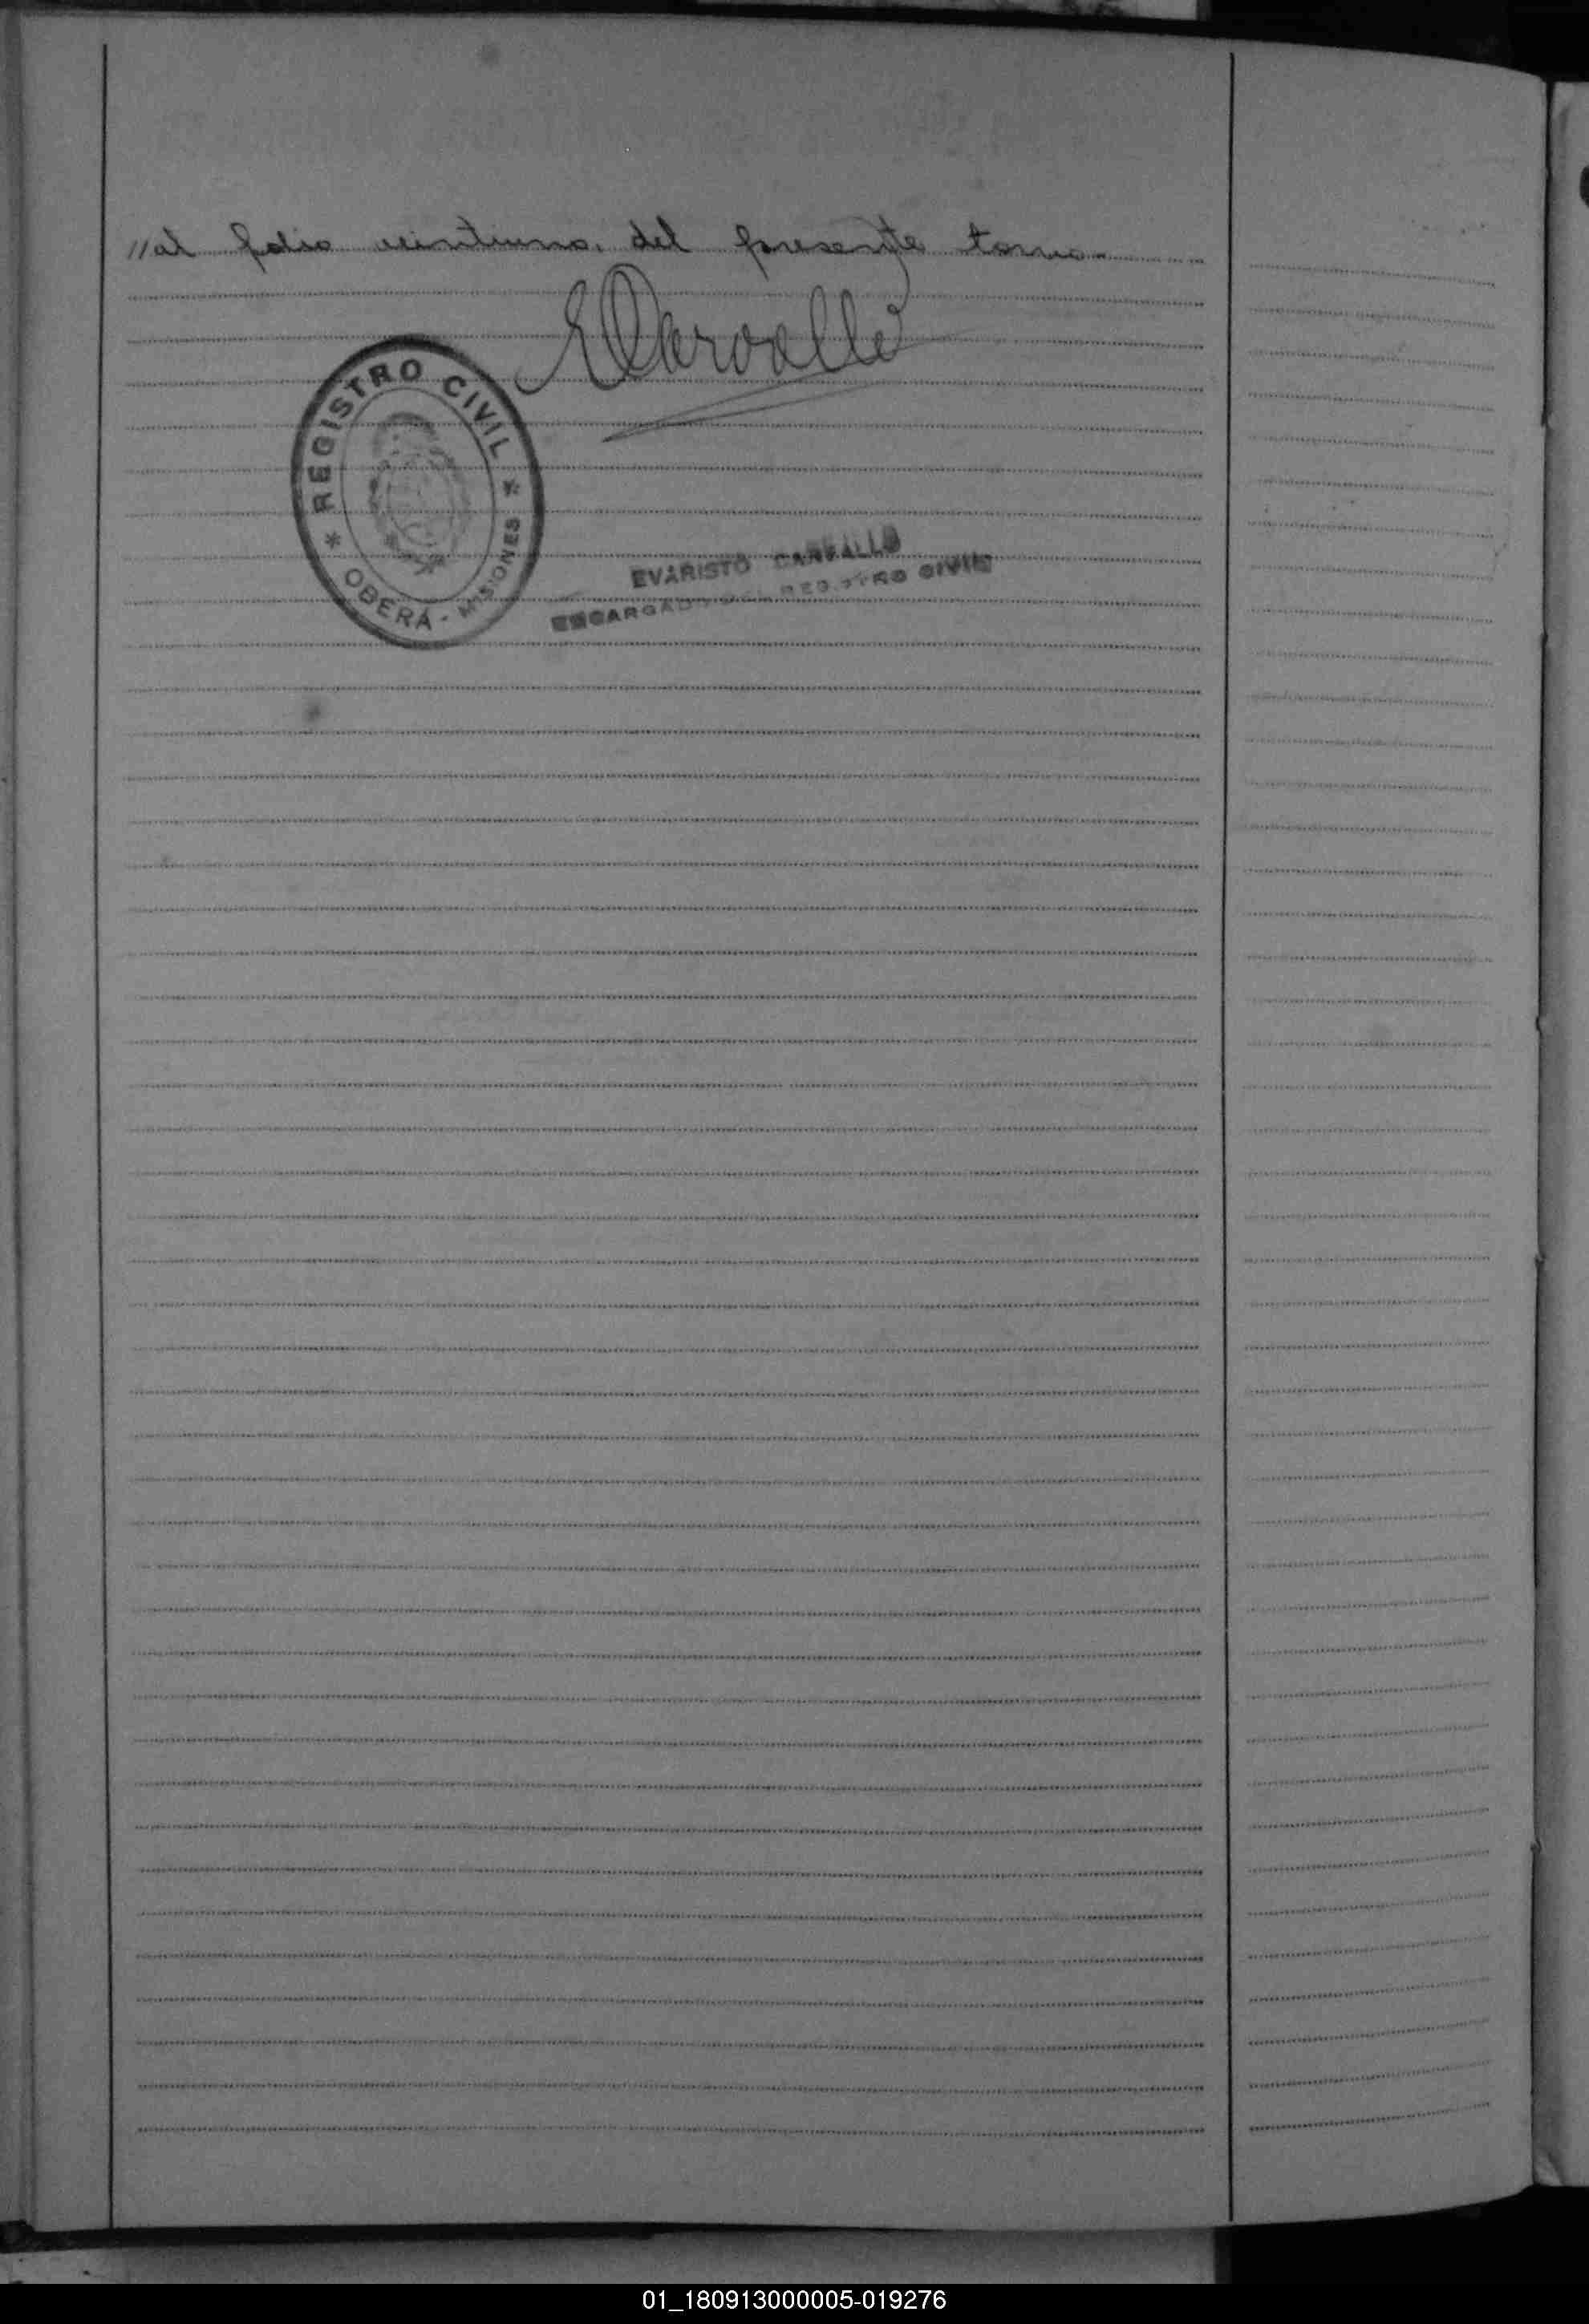 //al folio veintiuno. del presente tomo.-
ECarvallo
* REGISTRO CIVIL *
OBERÁ - MISIONES
EVARISTO CARVALLO
ENCARGADO DEL REGISTRO CIVIL
01_180913000005-019276